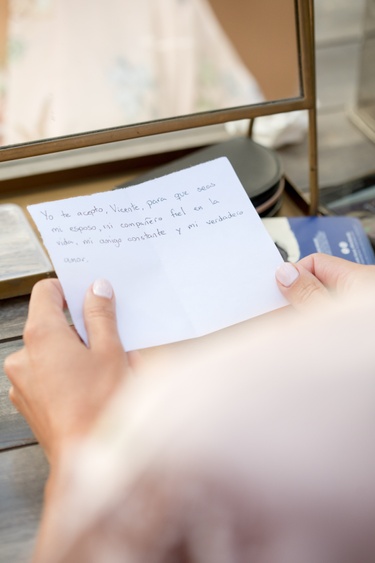 Yo te acepto, Vicente, para que seas
mi esposo, mi compañero fiel en la
vida, mi amigo constante y mi verdadero
amor.